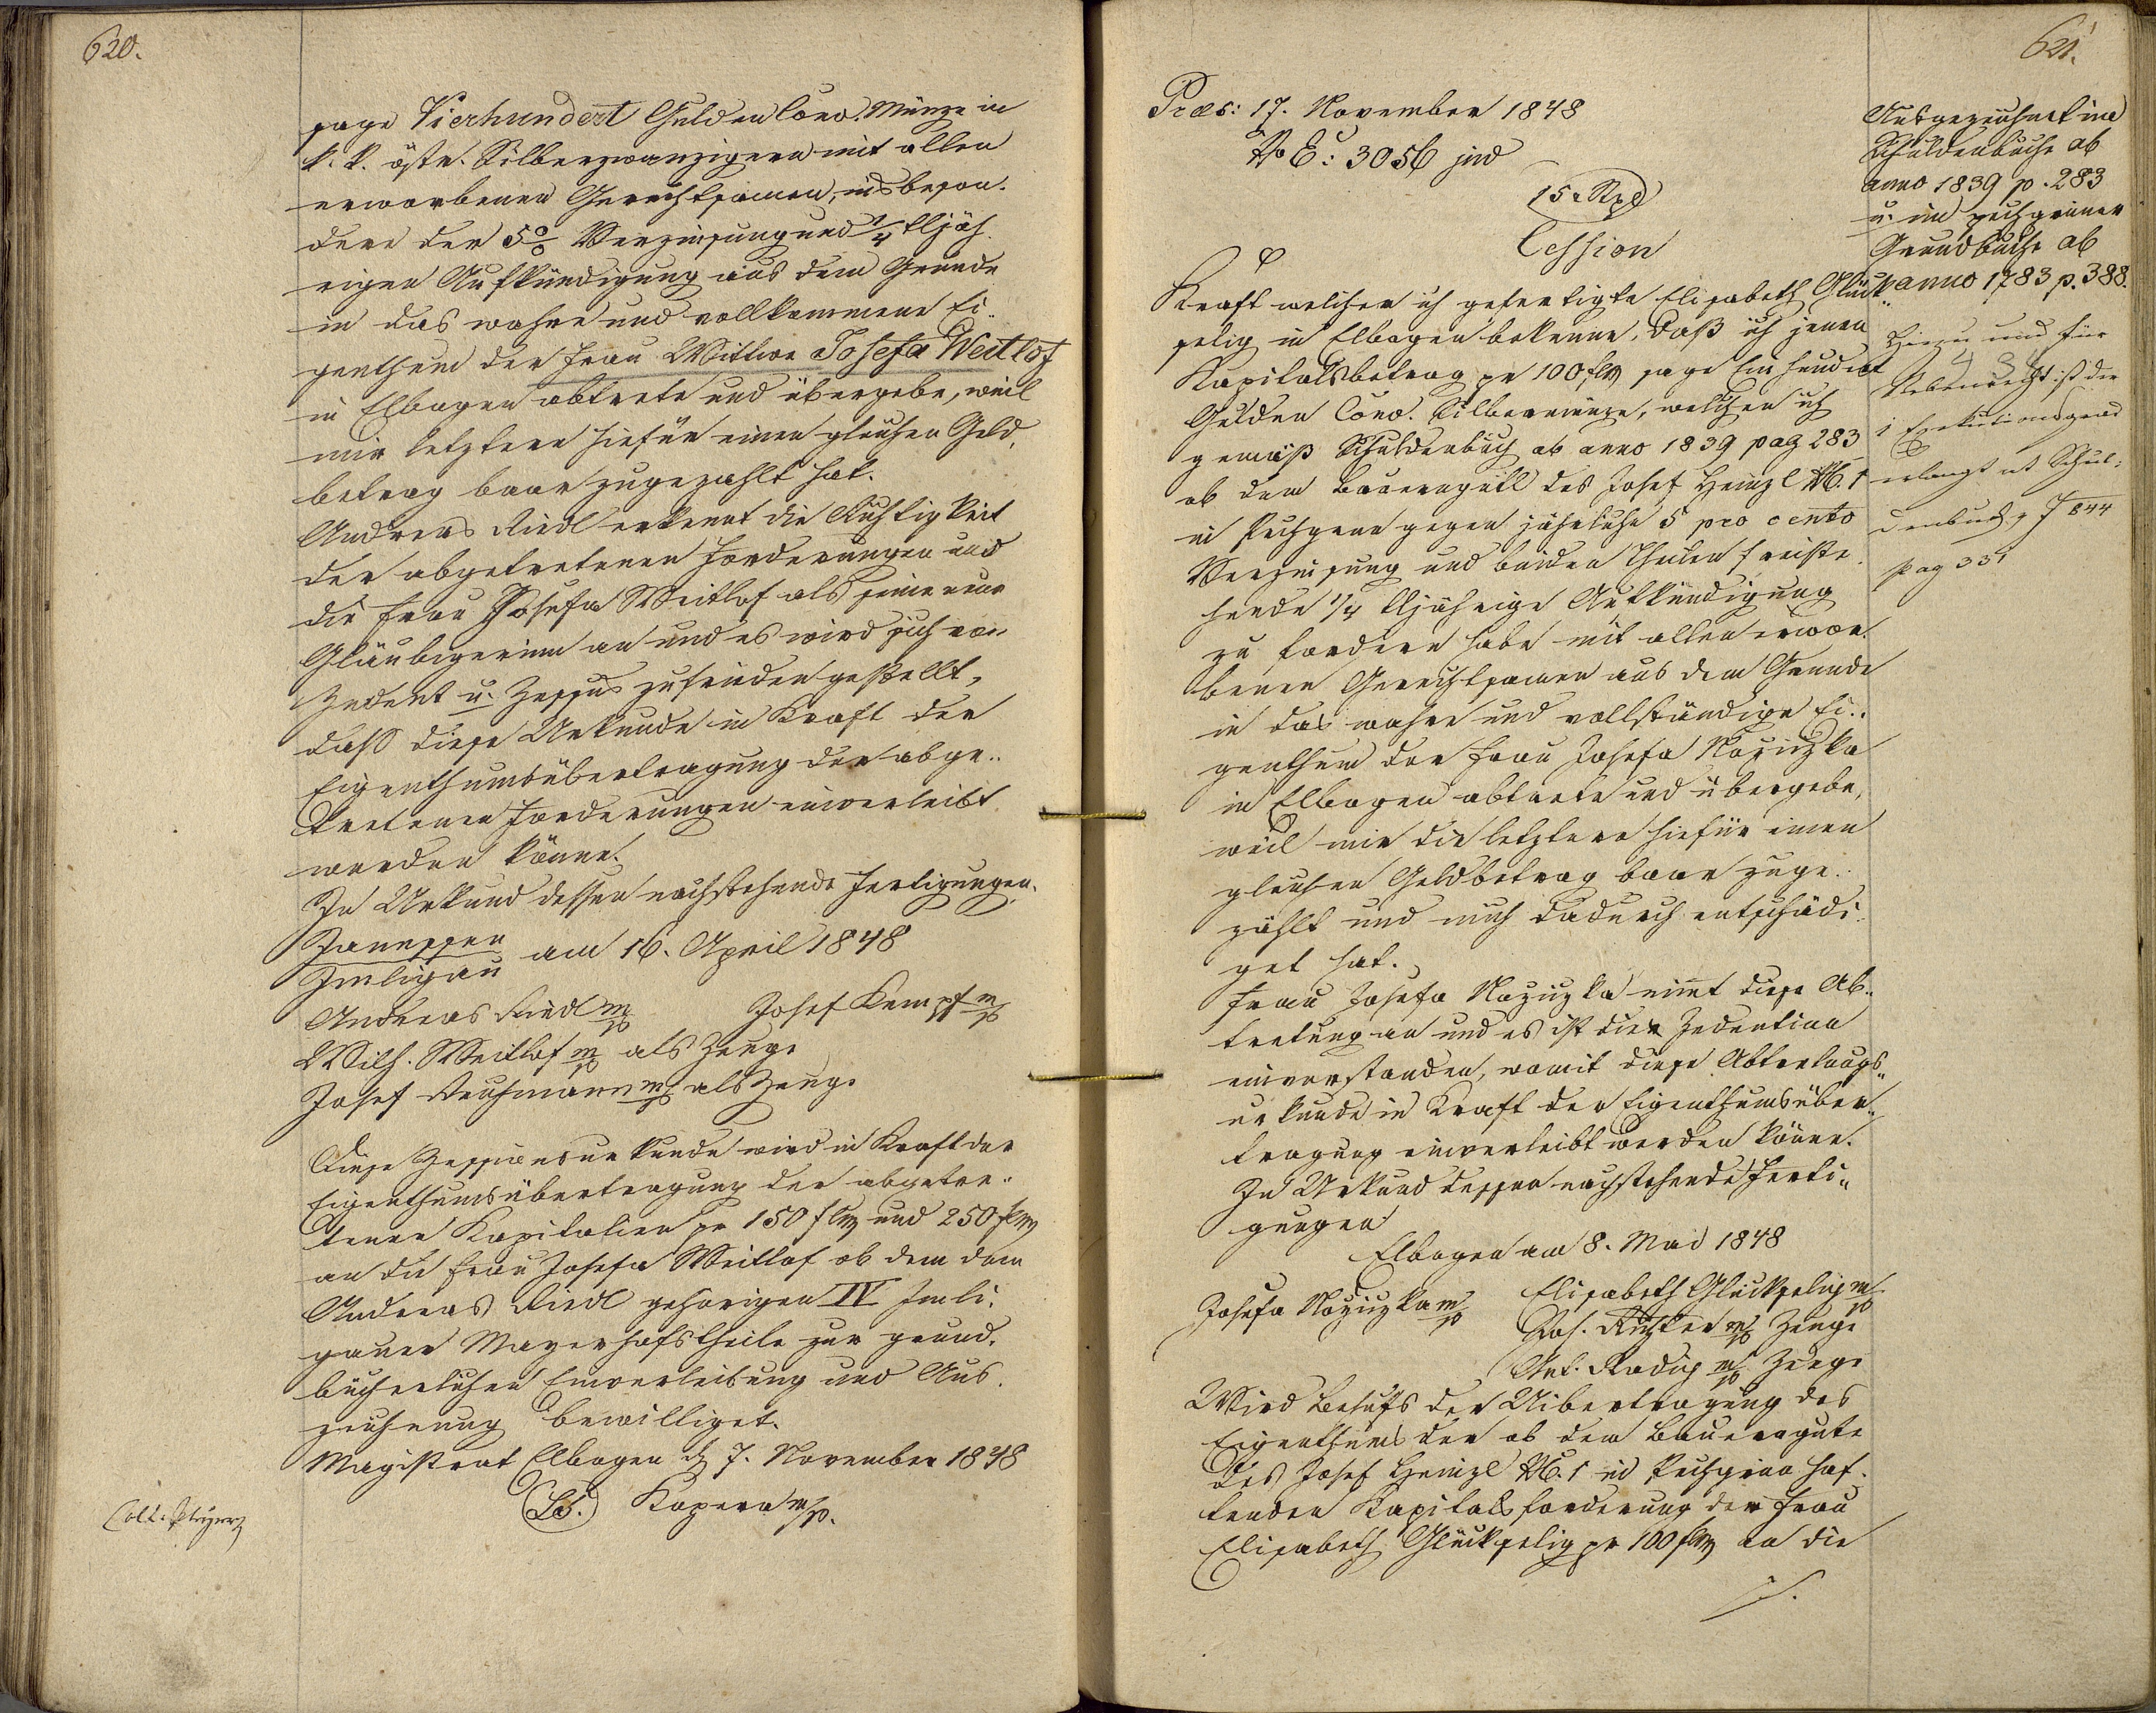 620.
sage Vierhundert Gulden Conv. Münze in
k. k. östr. Silberzwanzigern mit allen
erworbenen Gerechtsamen, insbeson-
dere der 5% Verzinsung und 1/4 lljäh-
rigen Aufkündigung aus dem Grunde
in das wahre und vollkommene Ei-
genthum der Frau Wittwe Josefa Weitlof
in Elbogen abtrete und übergebe, weil
mir letztere hiefür einen gleichen Geld-
betrag baar zugezahlt hat.
Andreas Riedl erkennt die Richtigkeit
der abgetretenen Forderungen und
die Frau Josefa Weitlof als seine neue
Gläubigerinn an und es wird sich von
Zedent u. Zessus zufrieden gestellt,
daß diese Urkunde in Kraft der
Eigenthumsübertragung der abge-
tretenen Forderungen einverleibt
werden könne.
In Urkund dessen nachstehende Fertigungen.
Zanessen
Imligau am 16. April 1848
Andreas Riedl mp Josef Kempf mp
Wilh. Weitlof mp als Zeuge
Josef mp als Zeuge
Diese Zessionsurkunde wird in Kraft der
Eigenthumsübertragung der abgetre-
tenen Kapitalien pr 150 f CM und 250 f CM
an die Frau Josefa Weitlof ob dem dem
Andreas Riedl gehörigen IV Imli-
gauer Mayerhofstheile zur grund-
bücherlichen Einverleibung und Aus-
zeichnung bewilliget.
Magistrat Elbogen d 7. November 1848
(LS.) Kopera mp.
Coll.
621.
Praes: 17. November 1848
No E: 3056 jud
15 Rpl
Cession
Kraft welcher ich gefertigte Elisabeth Glück-
selig in Elbogen bekenne, daß ich jenen
Kapitalsbetrag pr 100 f CM sage Ein hundert
Gulden Conv. Silbermünze, welchen ich
gemäß Schuldenbuch ab anno 1839 pag 283
ob dem Bauerngütl des Josef Heinzl No. 1
in Pechgrün gegen jährliche 5 pro cento
Verzinsung und beiden Theilen freiste-
hende 1/4 lljährige Aufkündigung
zu fordern habe mit allen erwor-
benen Gerechtsamen aus dem Grunde
in das wahre und vollständige Ei-
genthum der Frau Josefa Noziczka
in Elbogen abtrete und übergebe,
weil mir die letztere hiefür einen
gleichen Geldbetrag baar zuge-
zählt und mich dadurch entschädi-
get hat.
Frau Josefa Noziczka nimt diese Ab-
tretung an und es ist die Zedentinn
einverstanden, womit diese Abtretungs-
urkunde in Kraft der Eigenthumsüber-
tragung einverleibt werden könne.
In Urkund dessen nachstehende Ferti-
gungen
Elbogen am 8. Mai 1848
Josefa Noziczka mp Elisabeth Glückselig mp
Joh. mp Zeuge
Ant. mp Zeuge
Wird Behufs der Uibertragung des
Eigenthums der ob dem Bauerngute
des Josef Heinzl No. 1 in Pechgrün haf-
tenden Kapitalsforderung der Frau
Elisabeth Glückselig pr 100 f CM an die
Ausgezeichnet im
Schuldenbuche ab
anno 1839 p. 283
u. im pechgrüner
Grundbuche ab
anno 1783 p. 388.
Hiezu und für
Nebenrecht ist der
1 Exekutionsgrad
erlangt ut Schul-
denbuch 1844
pag 331